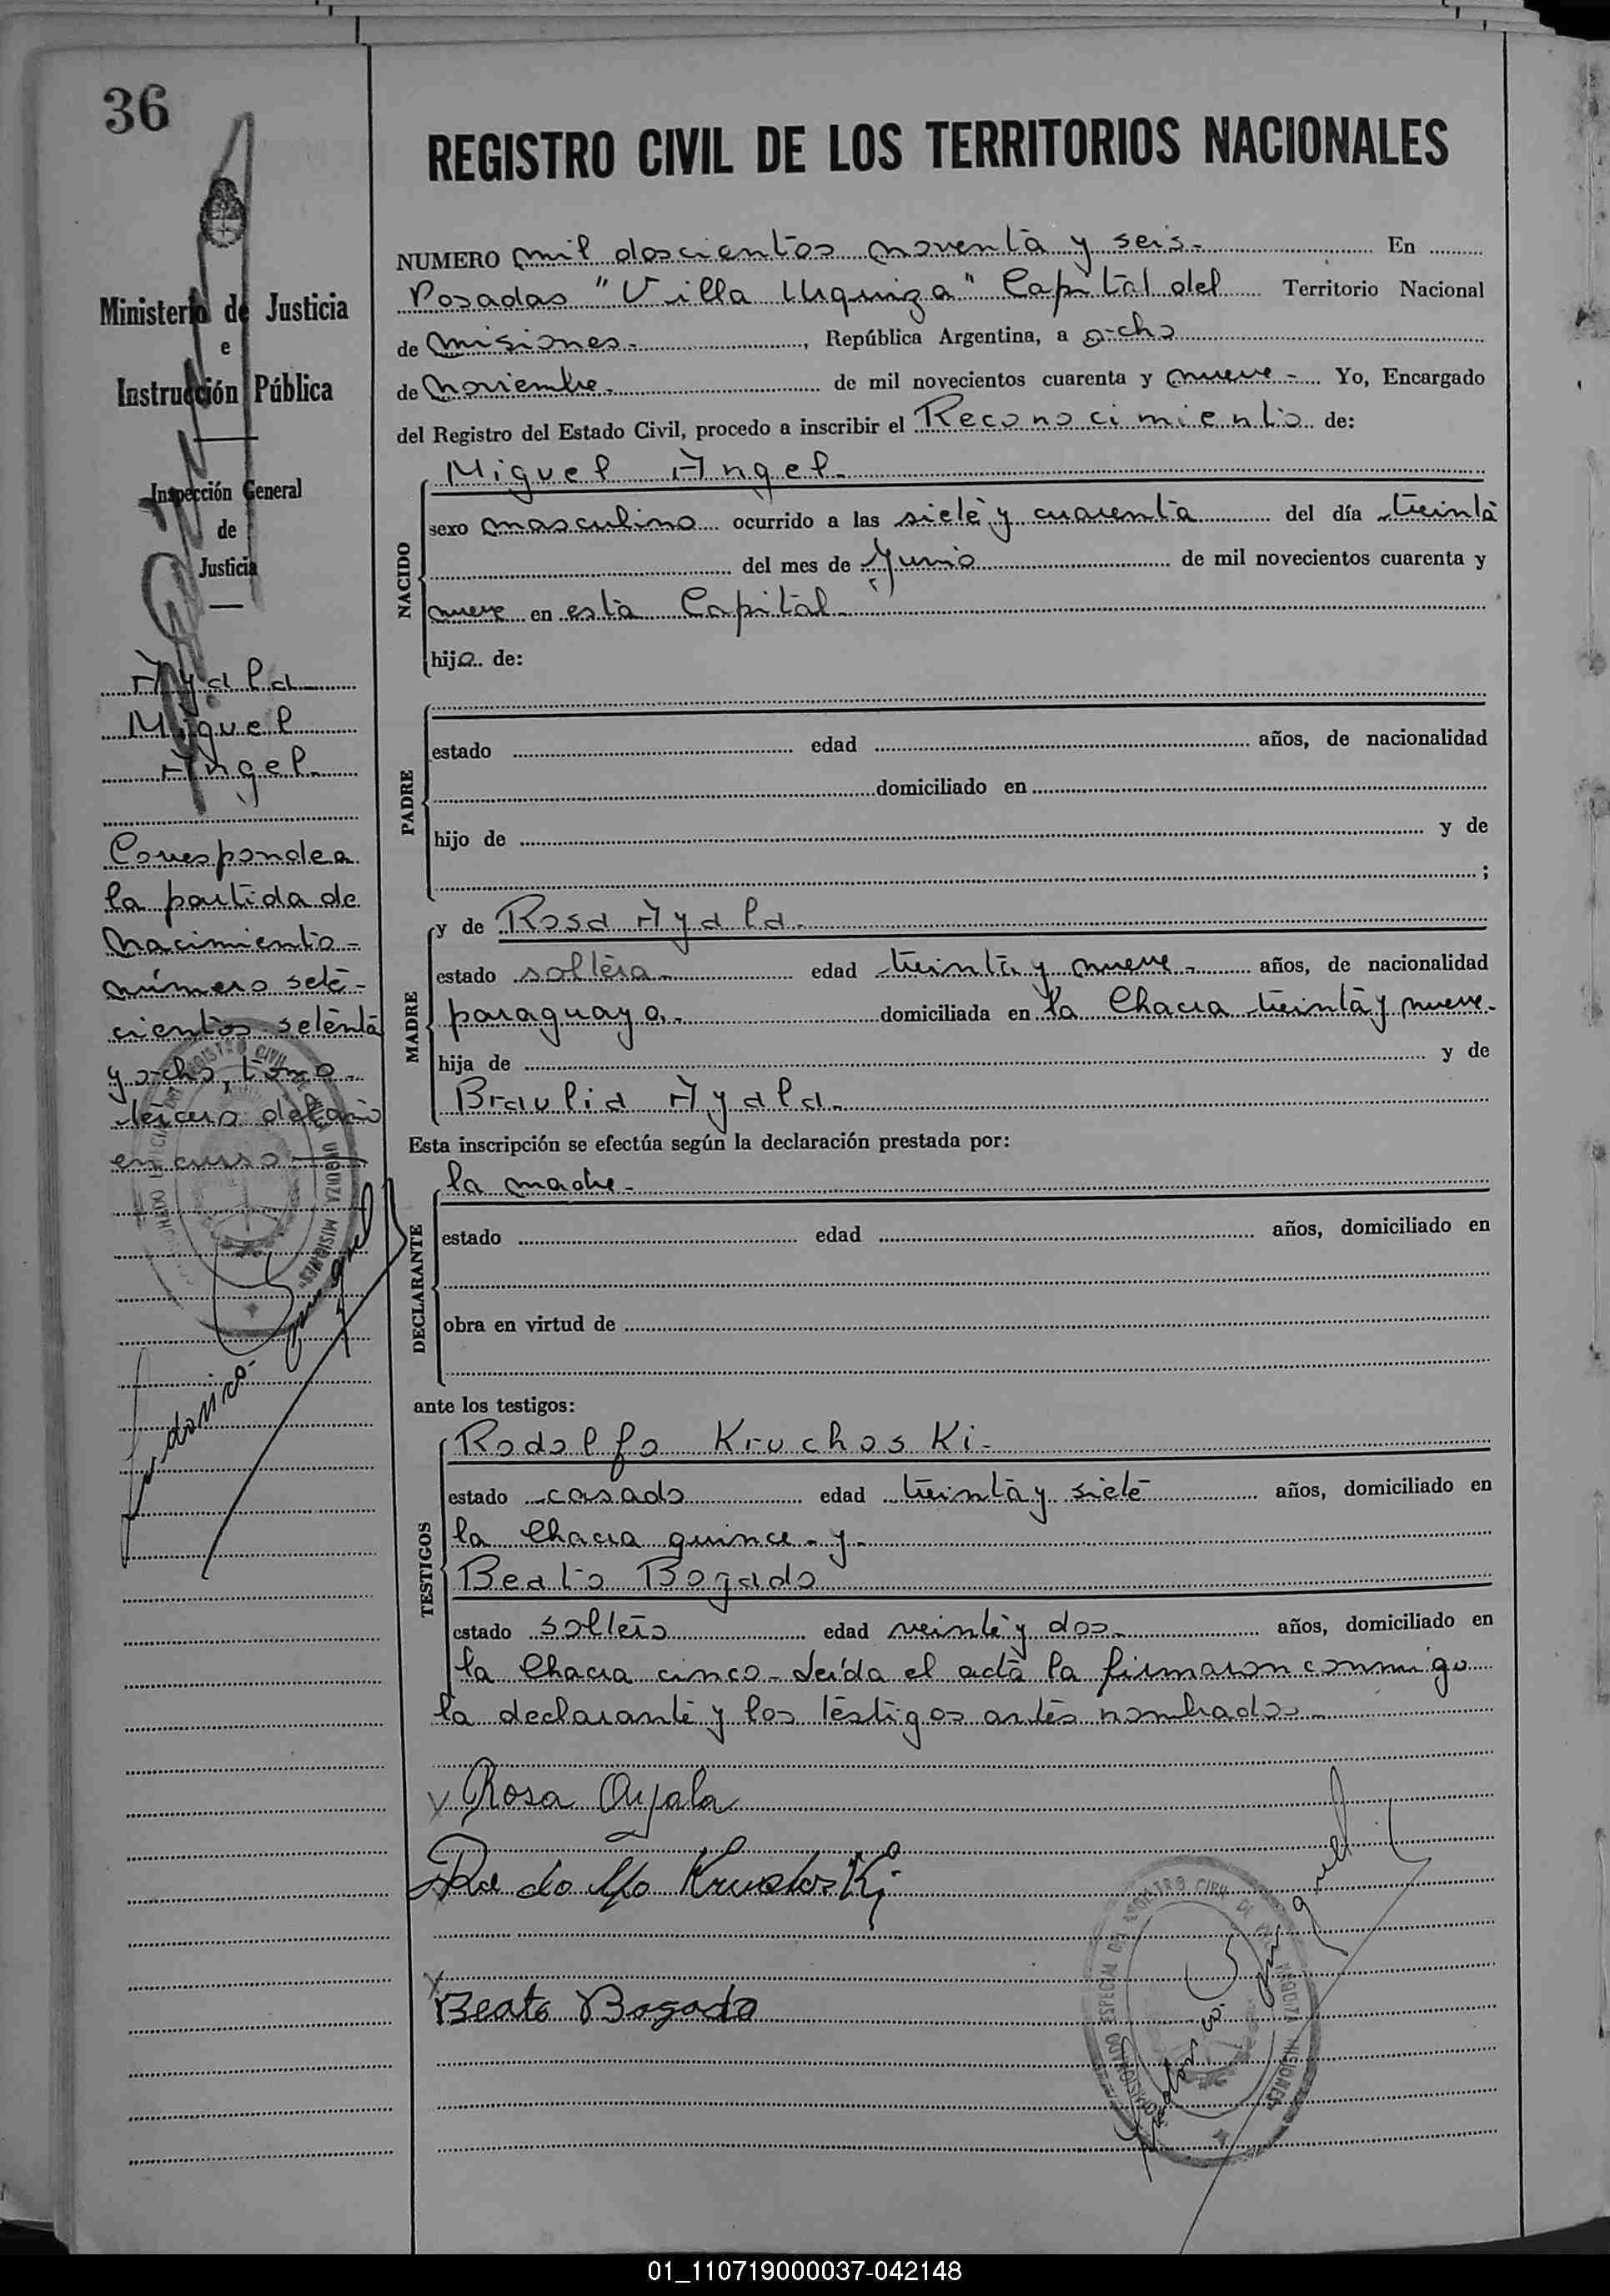 36
REGISTRO CIVIL DE LOS TERRITORIOS NACIONALES
Ministerio de Justicia
e
Instrucción Pública
Inspección General
de
Justicia
Ayala
Miguel
Angel.
Corresponde a
la partida de
nacimiento-
número sete-
cientos setenta
y ocho, tomo-
tercero del año
en curso
NUMERO mil doscientos noventa y seis.- En
Posadas "Villa Urquiza" Capital del Territorio Nacional
de Misiones.-, República Argentina, a ocho
de Noviembre.- de mil novecientos cuarenta y nueve- Yo, Encargado
del Registro del Estado Civil, procedo a inscribir el Reconocimiento de:
Miguel Angel.-
NACIDO
sexo masculino ocurrido a las siete y cuarenta del día treinta
del mes de Junio de mil novecientos cuarenta y
nueve en esta Capital-
hijo de:
PADRE
estado edad años, de nacionalidad
domiciliado en
hijo de y de
;
MADRE
y de Rosa Ayala.-
estado soltera.- edad treinta y nueve- años, de nacionalidad
paraguaya.- domiciliada en la Chacra treinta y nueve.-
hija de y de
Braulia Ayala.-
Esta inscripción se efectúa según la declaración prestada por:
DECLARANTE
la madre-
estado edad años, domiciliado en
obra en virtud de
ante los testigos:
TESTIGOS
Rodolfo Kruchoski-
estado casado edad treinta y siete años, domiciliado en
la Chacra quince-y-
Beato Bogado
estado soltero edad veinte y dos- años, domiciliado en
la Chacra cinco-Leída el acta la firmaron conmigo
la declarante y los testigos antes nombrados-
x Rosa Ayala
Rodolfo Kruchoski
x
Beato Bogado
01_110719000037-042148